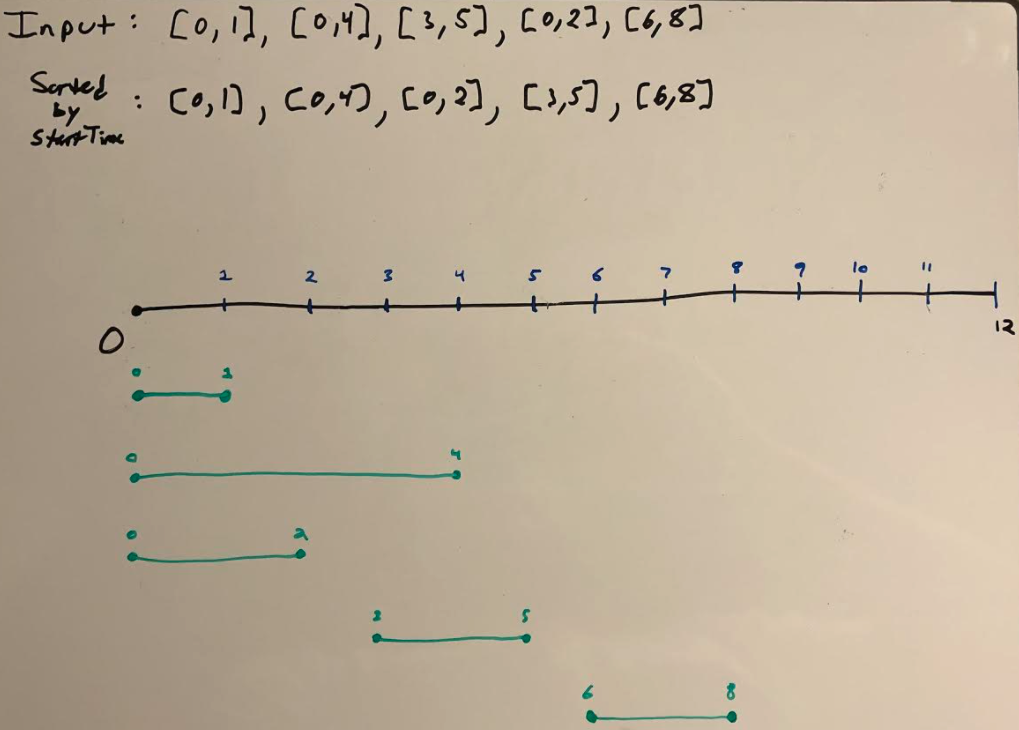 Input: [0,1], [0,4], [3,5], [0,2], [6,8]
Sorted
by
Start Time
: [0,1], [0,4], [0,2], [3,5], [6,8]
1 2 3 4 5 6 7 8 9 10 11
0 12
0 1
0 4
0 2
3 5
6 8